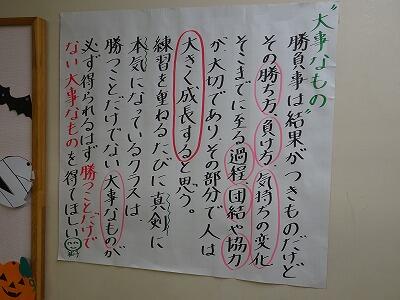 "大事なもの"
勝負事は"結果"がつきものだけど
その勝ち方、負け方、気持ちの変化
そこまでに至る過程、団結や協力
が大切であり、その部分で人は
大きく成長すると思う。
練習を重ねるたびに真剣に
本気になっているクラスは
勝つことだけでない大事なものが
必ず得られるはず勝つことだけで
ない大事なものを得てほしい